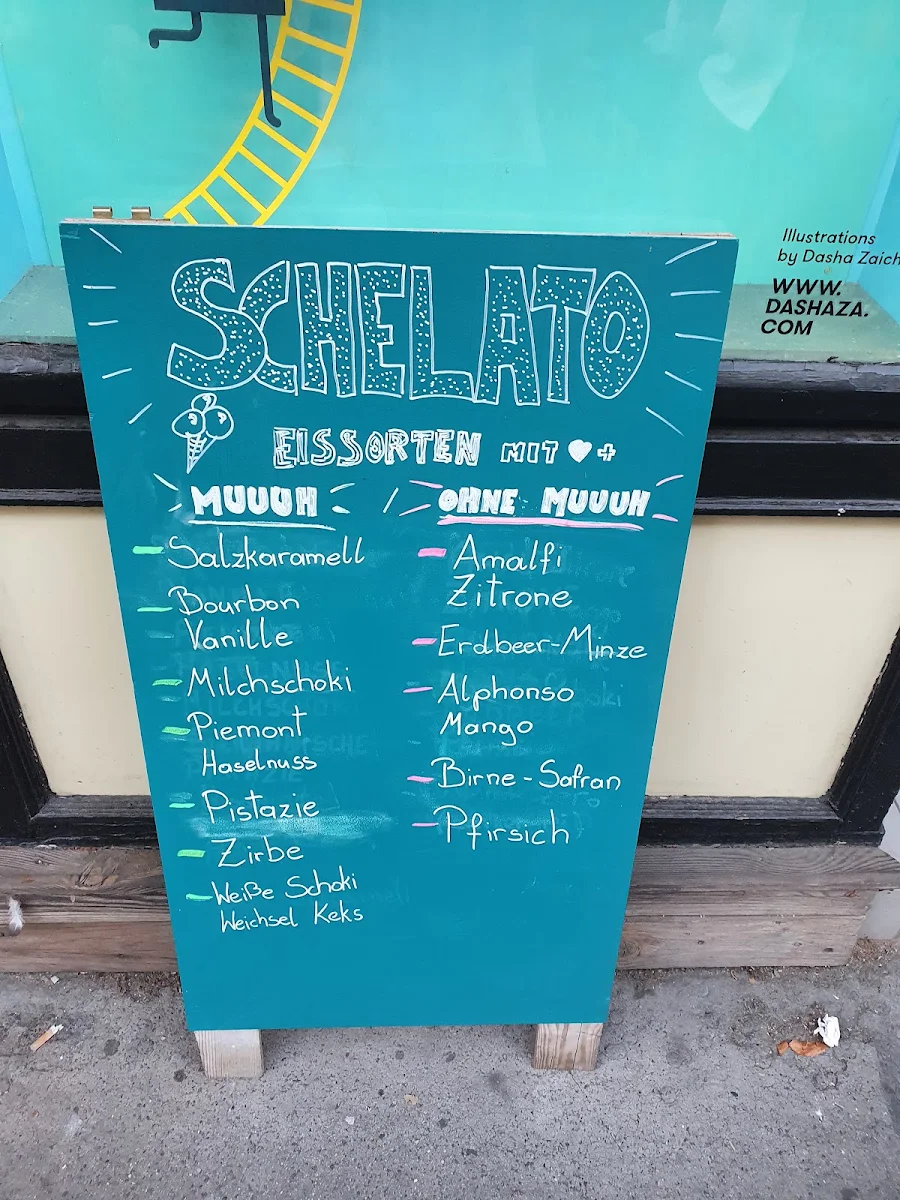 Illustrations
by Dasha Zaich
WWW.
DASHAZA.
COM
SCHELATO
EISSORTEN MIT ♥ +
MUUUH / OHNE MUUUH
- Salzkaramell
- Bourbon
Vanille
- Milchschoki
- Piemont
Haselnuss
- Pistazie
- Zirbe
- Weiße Schoki
Weichsel Keks
- Amalfi
Zitrone
- Erdbeer-Minze
- Alphonso
Mango
- Birne-Safran
- Pfirsich